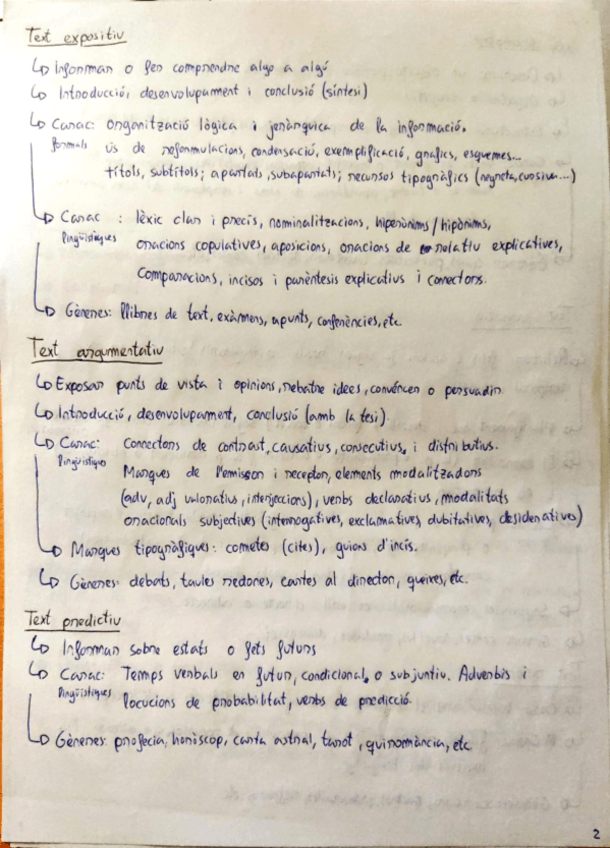 Text expositiu
↳ Informar o fer comprendre algo a algú
↳ Introducció, desenvolupament i conclusió (síntesi)
↳ Carac: organització lògica i jeràrquica de la informació.
formals ús de reformulacions, condensació, exemplificació, grafics, esquemes...
títols, subtítols; apartats, subapartats; recursos tipogràfics (negreta, cursiva...)
↳ Carac : lèxic clar i precís, nominalitzacions, hiperònims/hipònims,
lingüístiques oracions copulatives, aposicions, oracions de relatiu explicatives,
Comparacions, incisos i parèntesis explicatius i connectors.
↳ Gèneres: llibres de text, exàmens, apunts, conferències, etc
Text argumentatiu
↳ Exposar punts de vista i opinions, rebatre idees, convèncer o persuadir
↳ Introducció, desenvolupament, conclusió (amb la tesi).
↳ Carac: Connectors de contrast, causatius, consecutius, i distributius.
lingüístiques Marques de l'emissor i receptor, elements modalitzadors
(adv, adj valoratius, interjeccions), verbs declaratius, modalitats
oracionals subjectives (interrogatives, exclamatives, dubitatives, desideratives)
↳ Marques tipogràfiques: cometes (cites), guions d'incís.
↳ Gèneres: debats, taules redones, cartes al director, queixes, etc.
Text predictiu
↳ Informar sobre estats o fets futurs
↳ Carac: Temps verbals en futur, condicional, o subjuntiu. Adverbis i
lingüístiques locucions de probabilitat, verbs de predicció
↳ Gèneres: profecia, horòscop, carta astral, tarot, quiromància, etc
2